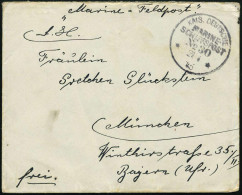 "Marine-Feldpost"
S. H.
KAIS. DEUTSCHE
MARINE-
SCHIFFSPOST
No 50
Fräulein
Gretchen Glückstein
München
Winthirstrasse 35
Bayern
frei.